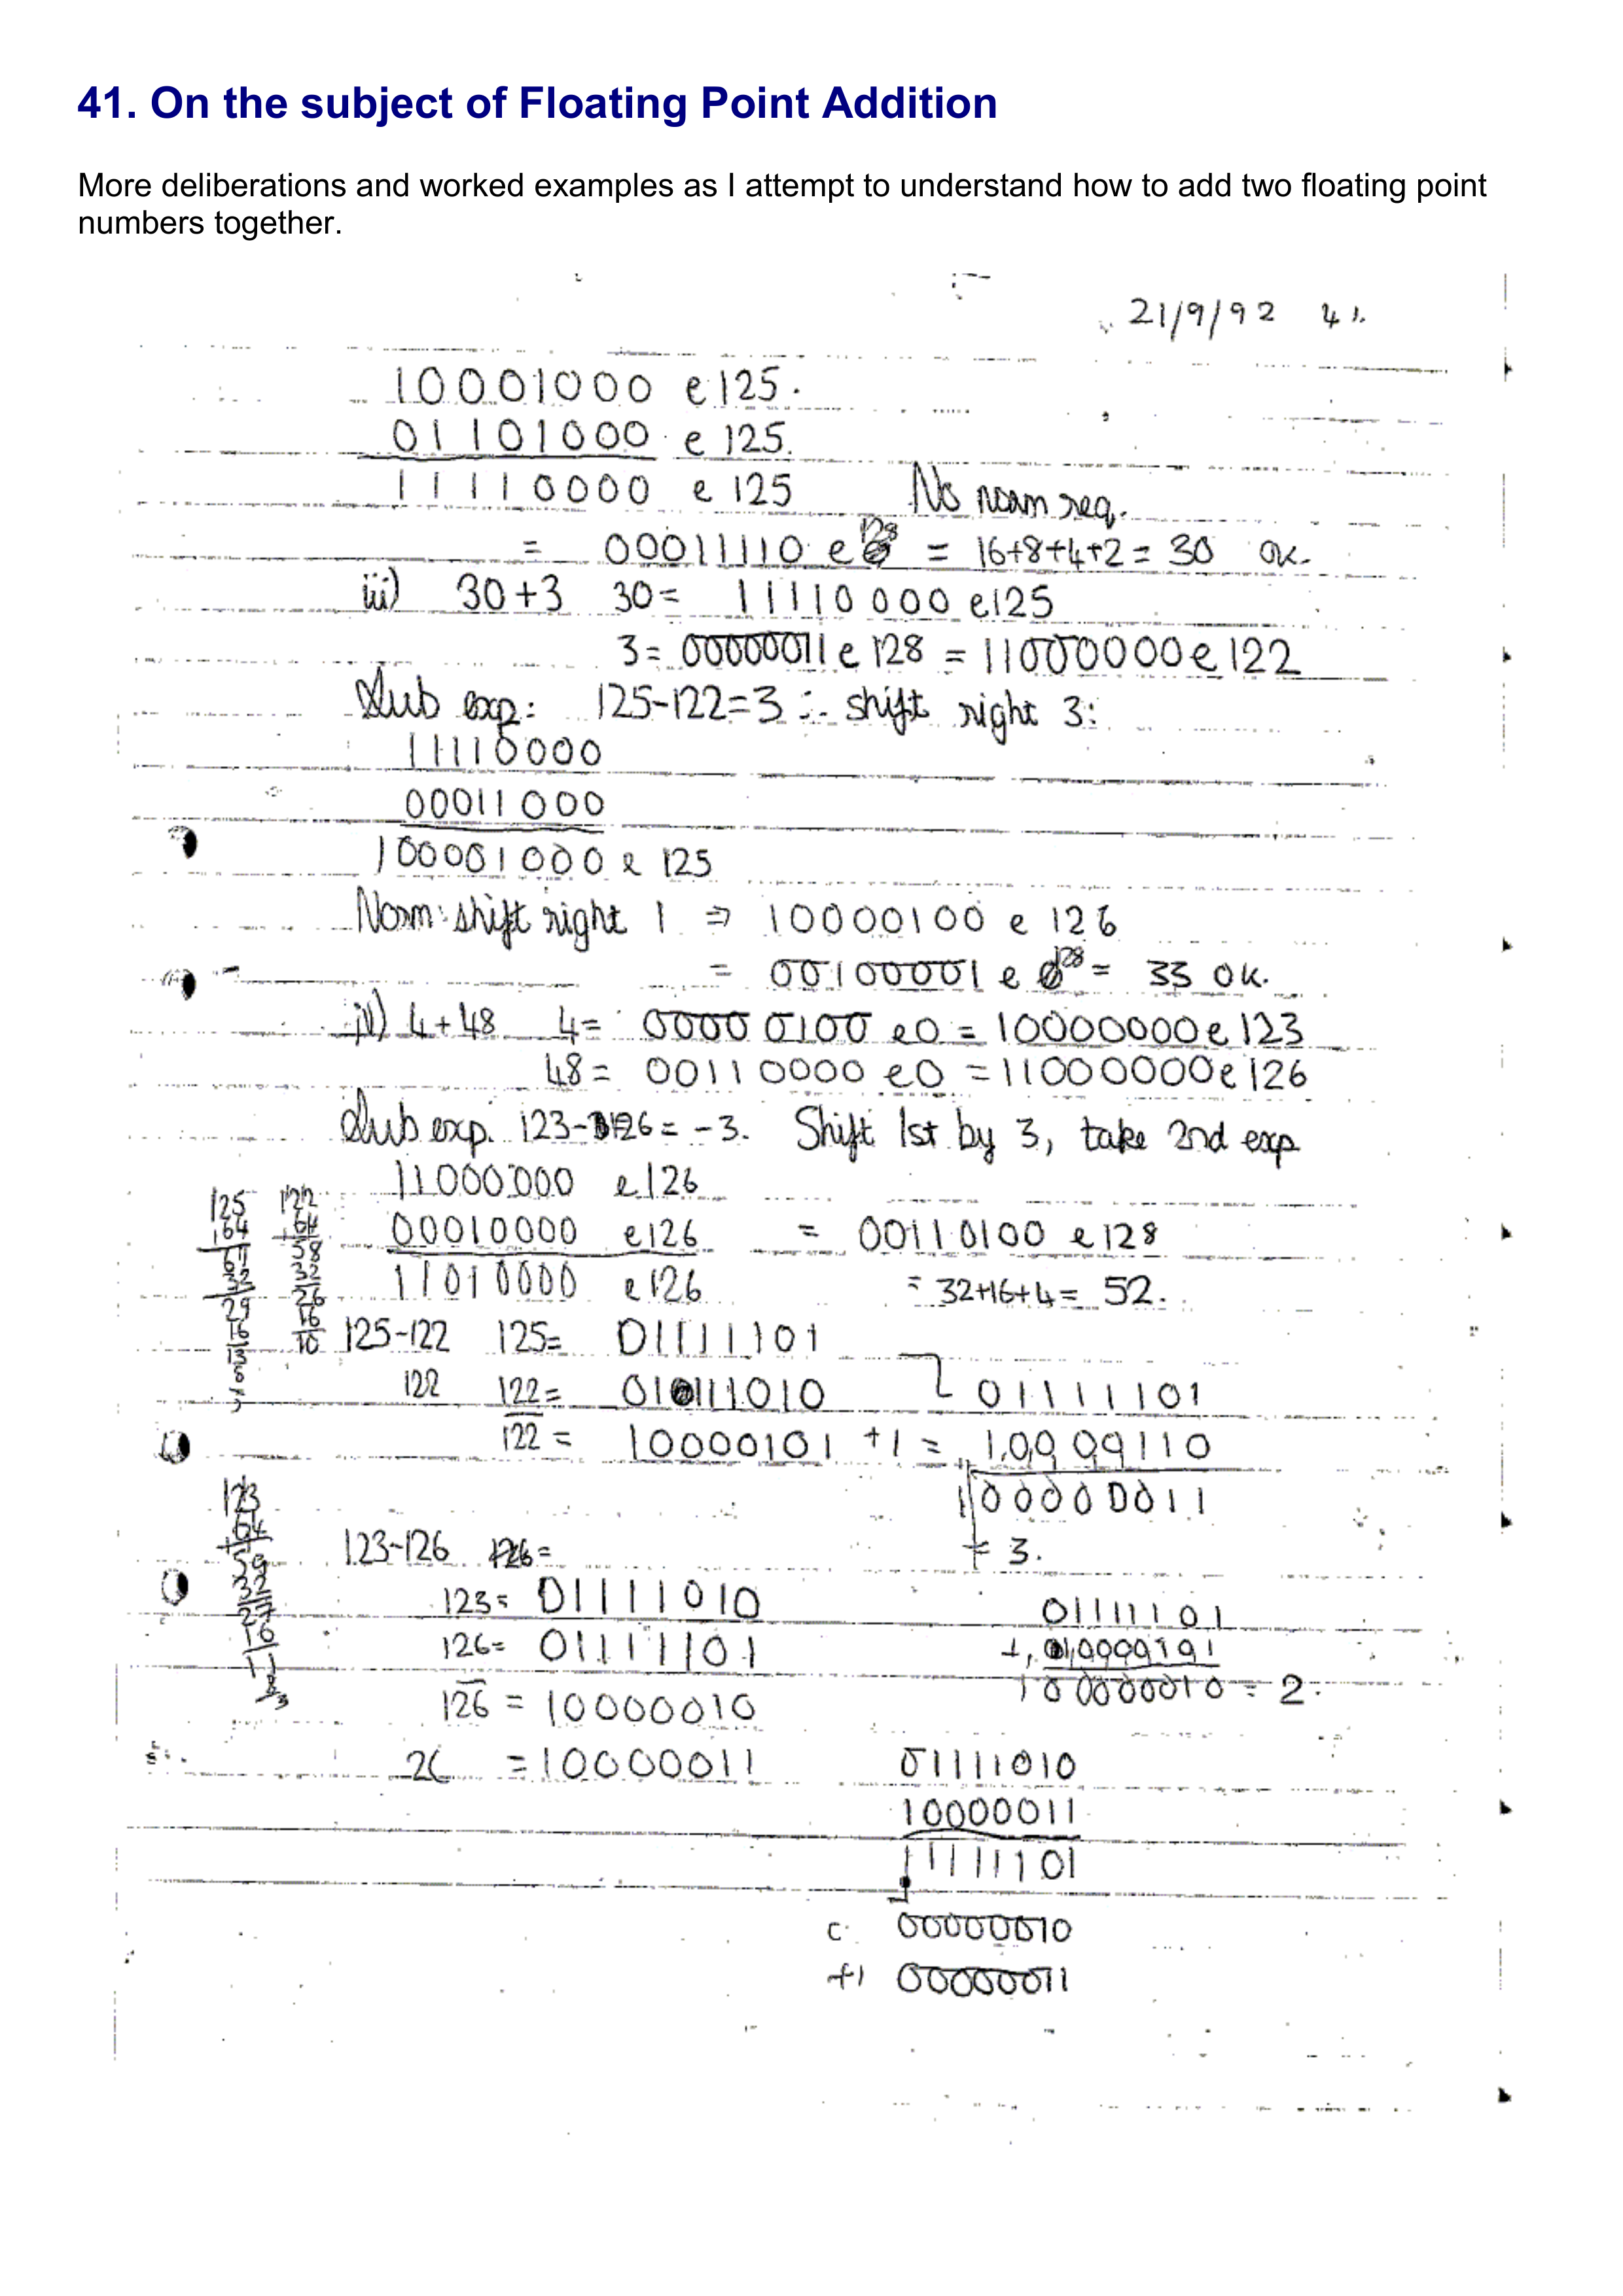 41. On the subject of Floating Point Addition
More deliberations and worked examples as I attempt to understand how to add two floating point
numbers together.
21/9/92 41.
10001000 e 125.
01101000 e 125.
11110000 e 125 No norm req.
= 00011110 e 128 = 16+8+4+2 = 30 OK.
iii) 30+3 30= 11110000 e125
3= 00000011 e 128 = 11000000 e 122
Sub exp: 125-122=3 ∴ shift right 3:
11110000
00011000
100001000 e 125
Norm: shift right 1 ⇒ 10000100 e 126
= 00100001 e 128 = 33 OK.
iv) 4+48 4= 00000100 e0 = 10000000 e 123
48= 00110000 e0 = 11000000 e 126
Sub exp. 123-126= -3. Shift 1st by 3, take 2nd exp
11000000 e126
00010000 e126 = 00110100 e128
11010000 e126 = 32+16+4= 52.
125 122
64 64
61 58
32 32
29 26
16 16
13 10
125-122 125= 01111101
122 122= 01111010 01111101
122 = 10000101 +1 = 10000110
100000011
= 3.
123
64
59
32
27
16
11
8
3
123-126 126=
123= 01111010 01111101
126= 01111101 + 10000101
126 = 10000010 100000010 = 2
26 = 10000011 01111010
10000011
11111101
c. 00000010
+1 00000011